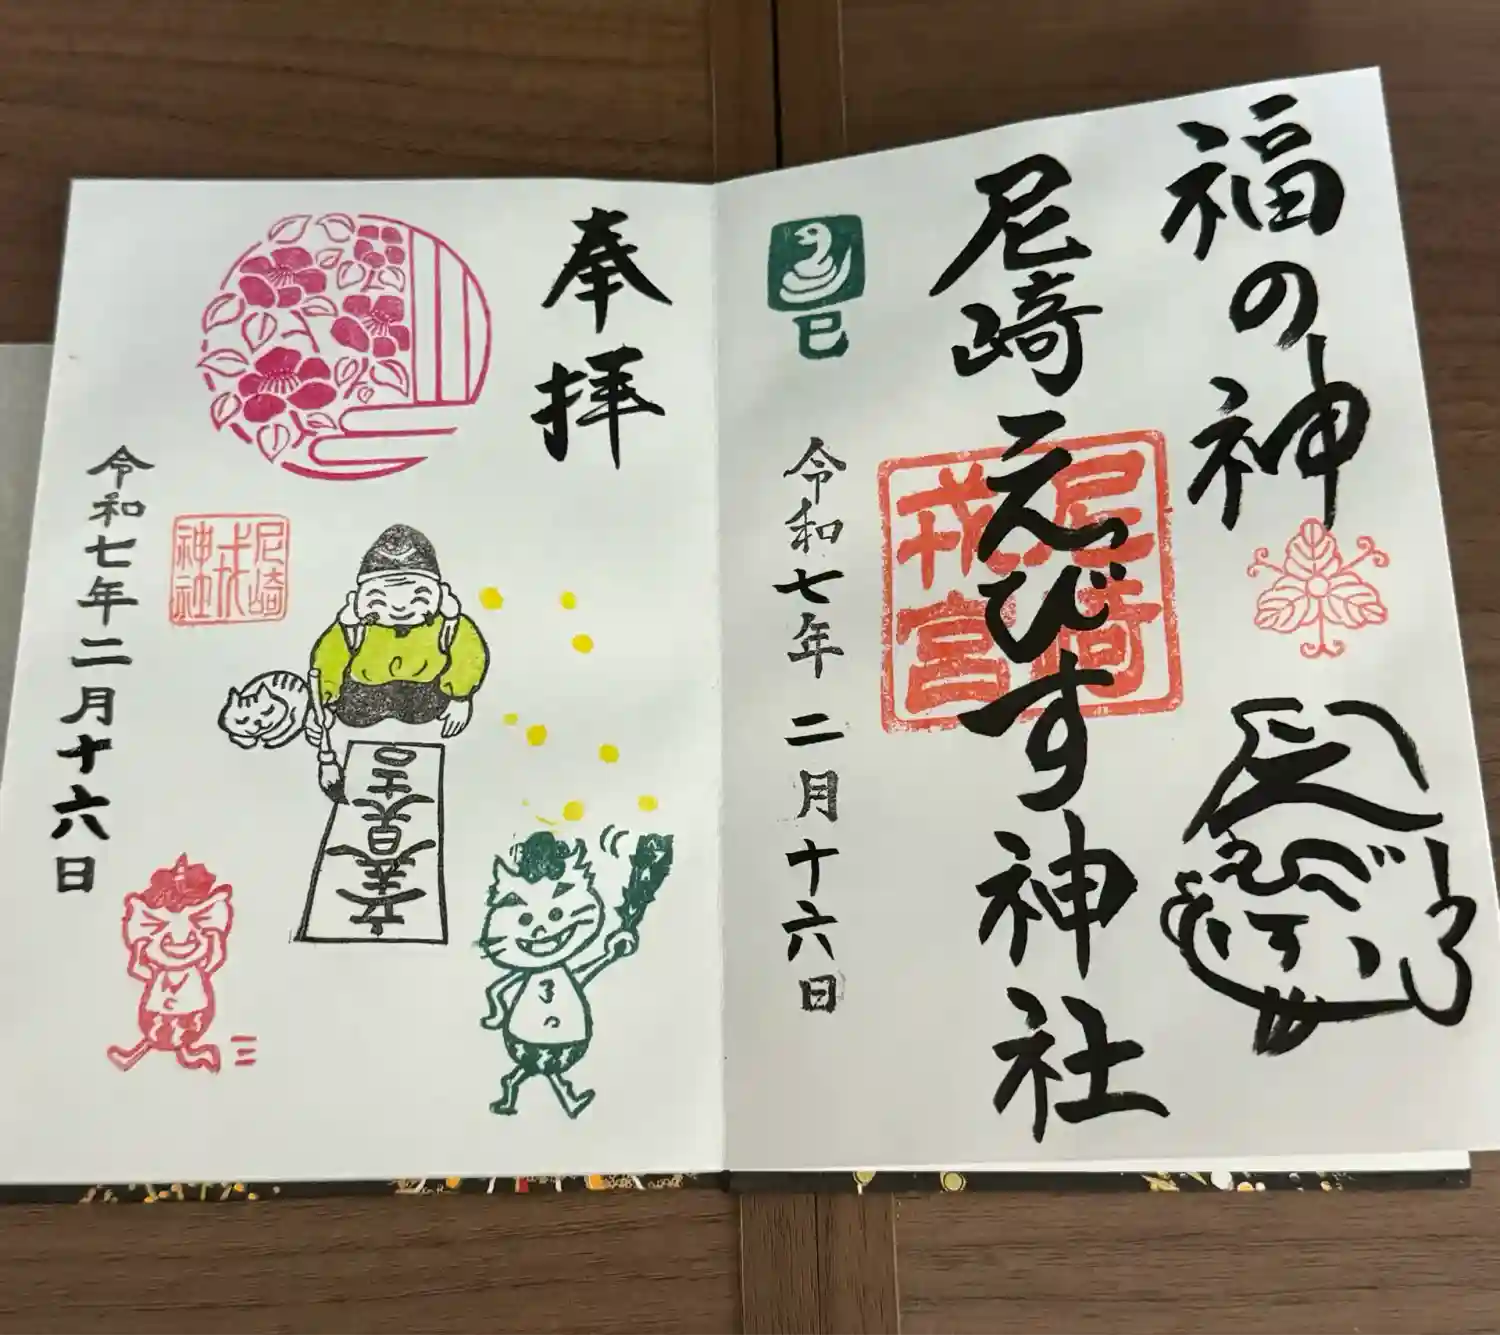 福の神
えびす
尼崎えびす神社
尼崎
戎宮
巳
令和七年二月十六日
奉拝
大吉
尼崎
戎
神社
令和七年二月十六日